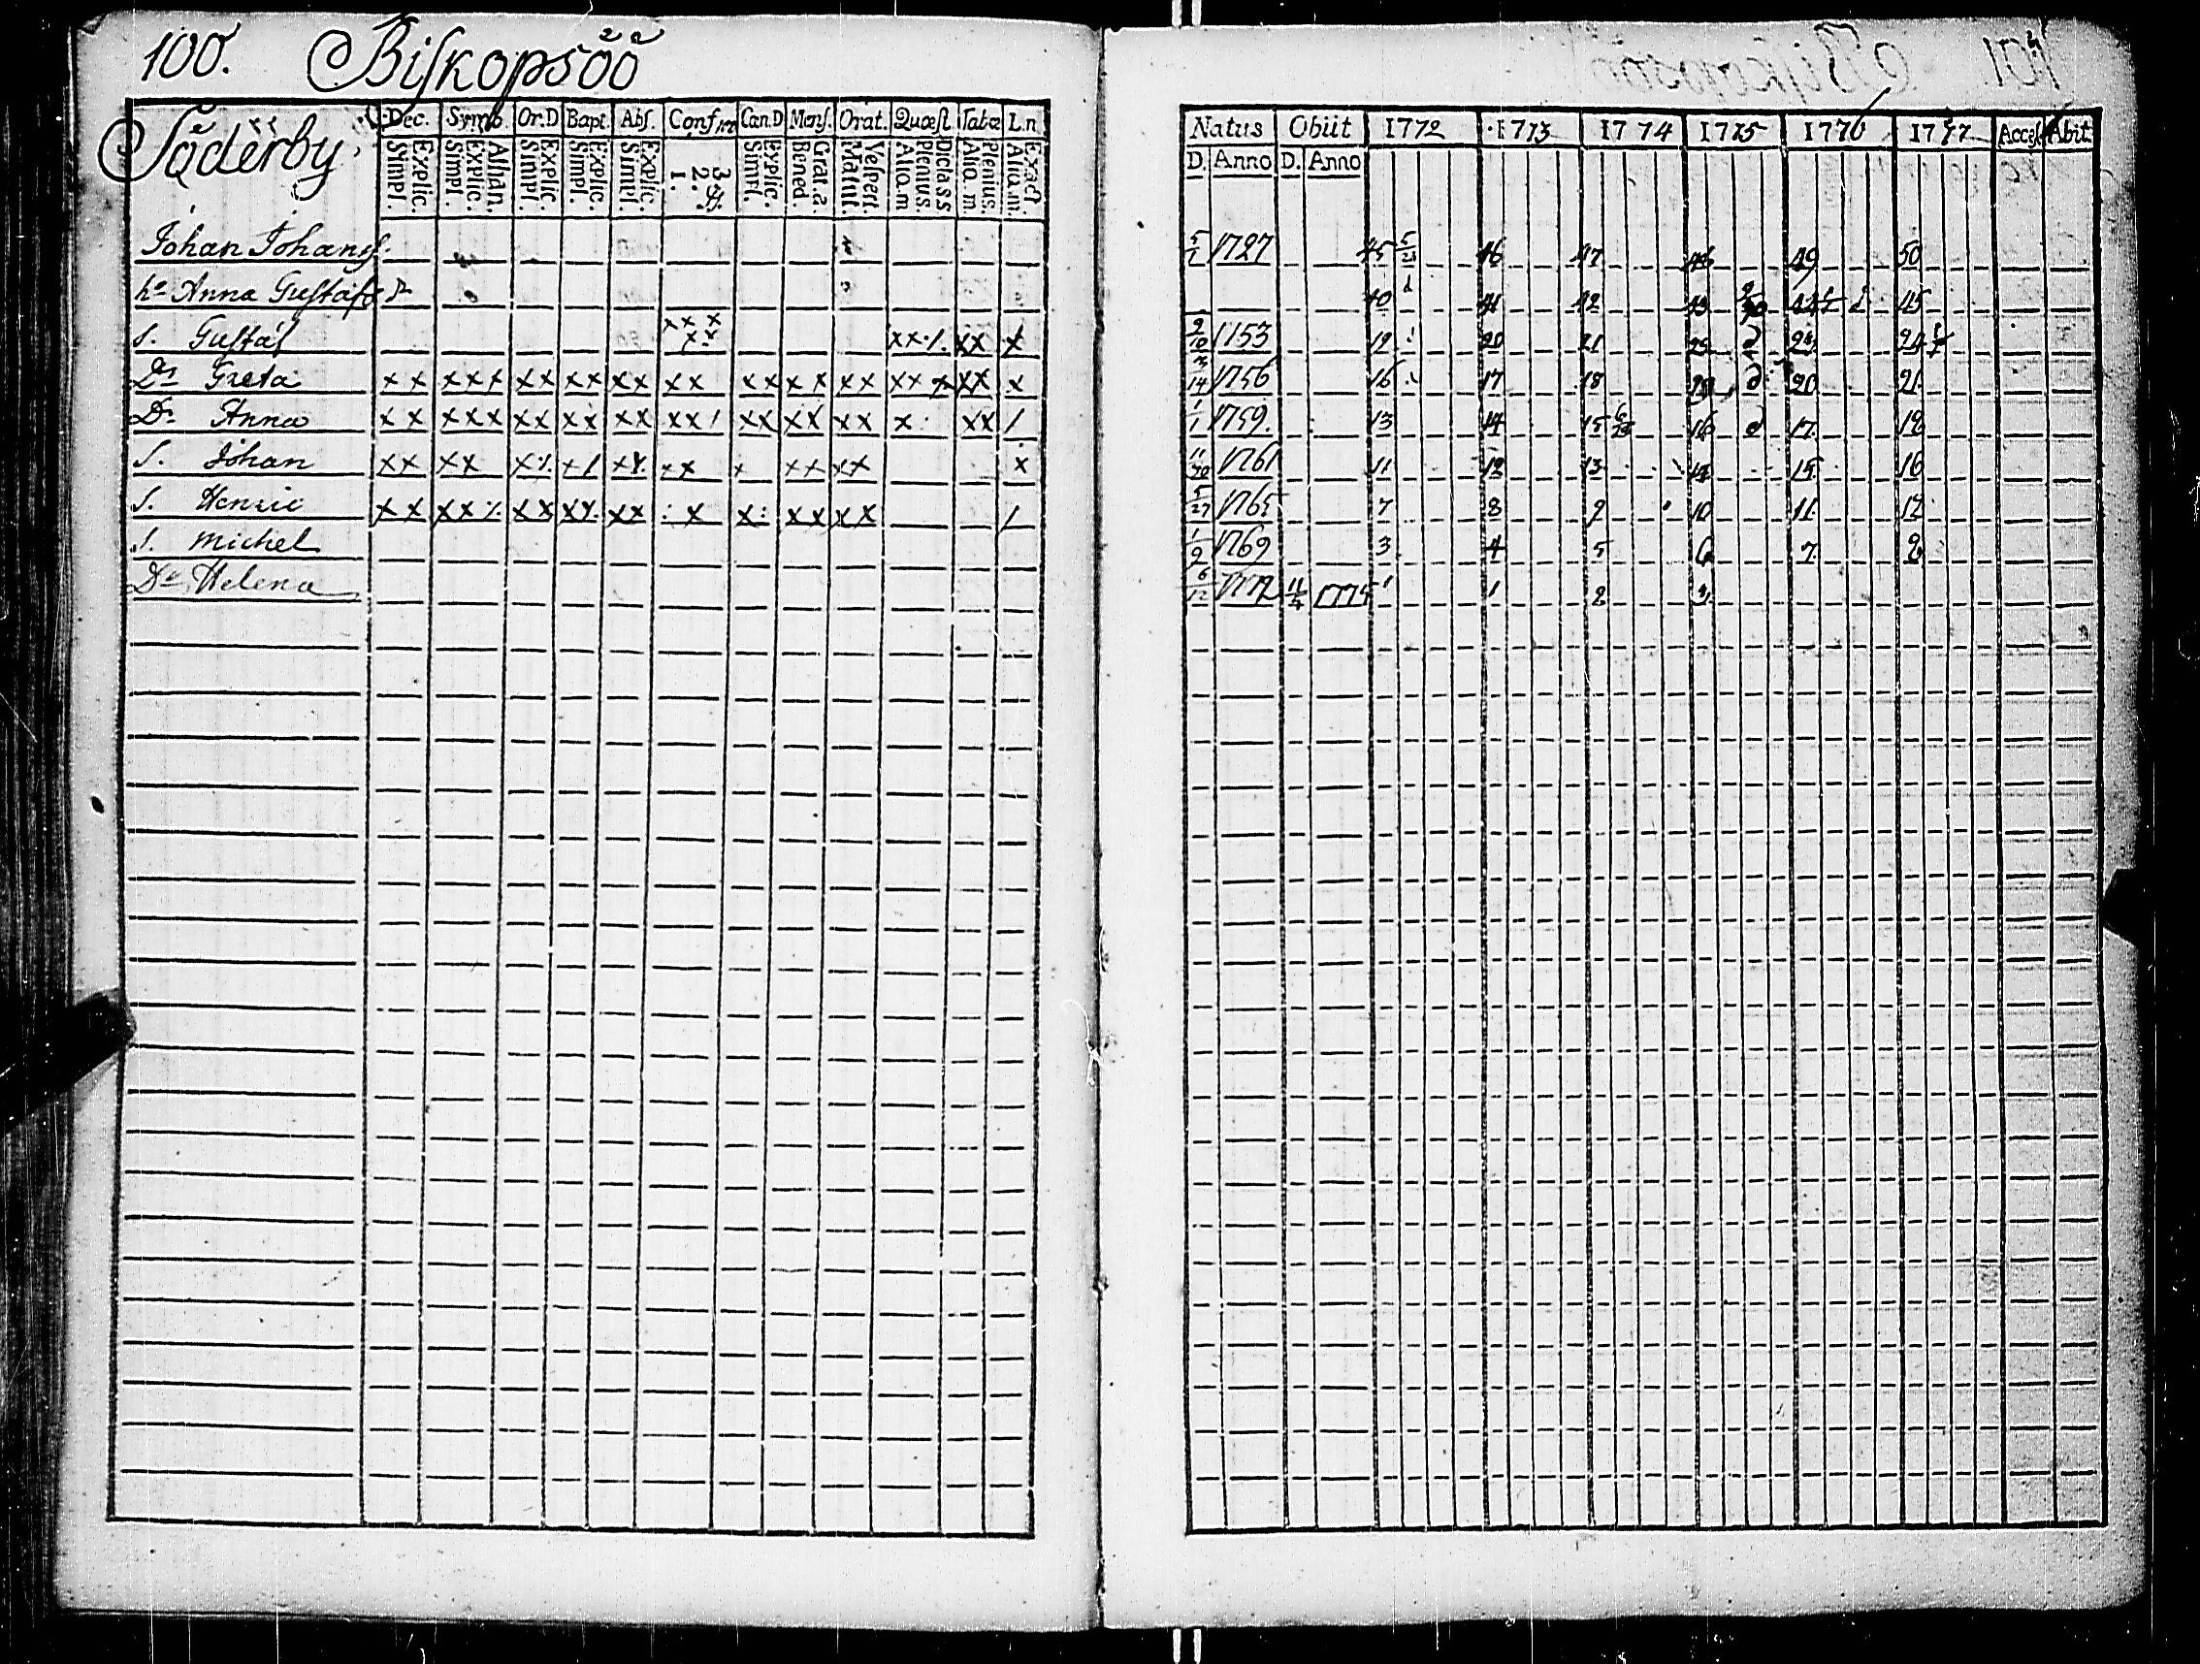 100. Biskopsöö
Söderby.
Dec. Symb. Or.D Bapt. Abs. Conf. Can.D Mens. Orat. Quæst Tabæ L.n
Simpl. Explic. Simpl. Explic. Athan. Simpl. Explic. Simpl. Explic. Simpl. Explic. 1. 2. 3 Simpl. Explic. Bened. Grat.a. Matut. Vespert. Alia.m Plenius. Dicta S S Alia.m. Plenius. Alia.m. Exact.
Natus Obiit 1772 1773 1774 1775 1776 1777 Access Abit
D. Anno D. Anno
Johan Johanss. 5/1 1727 45 46 47 49 50
hu Anna Gustafsd:r 40 41 42 43 45
S. Gustaf xx xx x 1753 19 20 21 24
Dr Greta xx xxx xx xx xx xx xx xx xx xx x xx x 14 1756 16 17 18 20 21
Dr Anna xx xxx xx xx xx xx / xx xx xx x xx / 1/1 1759. 13 14 15 16 17 18
S. Johan xx xx x xx x xx xx x 1761 11 12 13 14 15 16
S. Henric xx xx xx xx x x xx xx / 5/27 1765 7 8 9 10 11 12
S. Michel 1/9 1769 3 4 5 6 7 8
Dr Helena 6/12 1772 11/4 1775 1 1 2 3